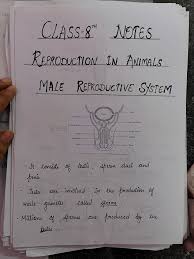 CLASS-8TH NOTES
REPRODUCTION IN ANIMALS
MALE REPRODUCTIVE SYSTEM
• It consists of testis, sperm duct and
penis.
• Testes are involved in the production of
male gametes called sperms.
• Millions of sperms are produced by the
testes.